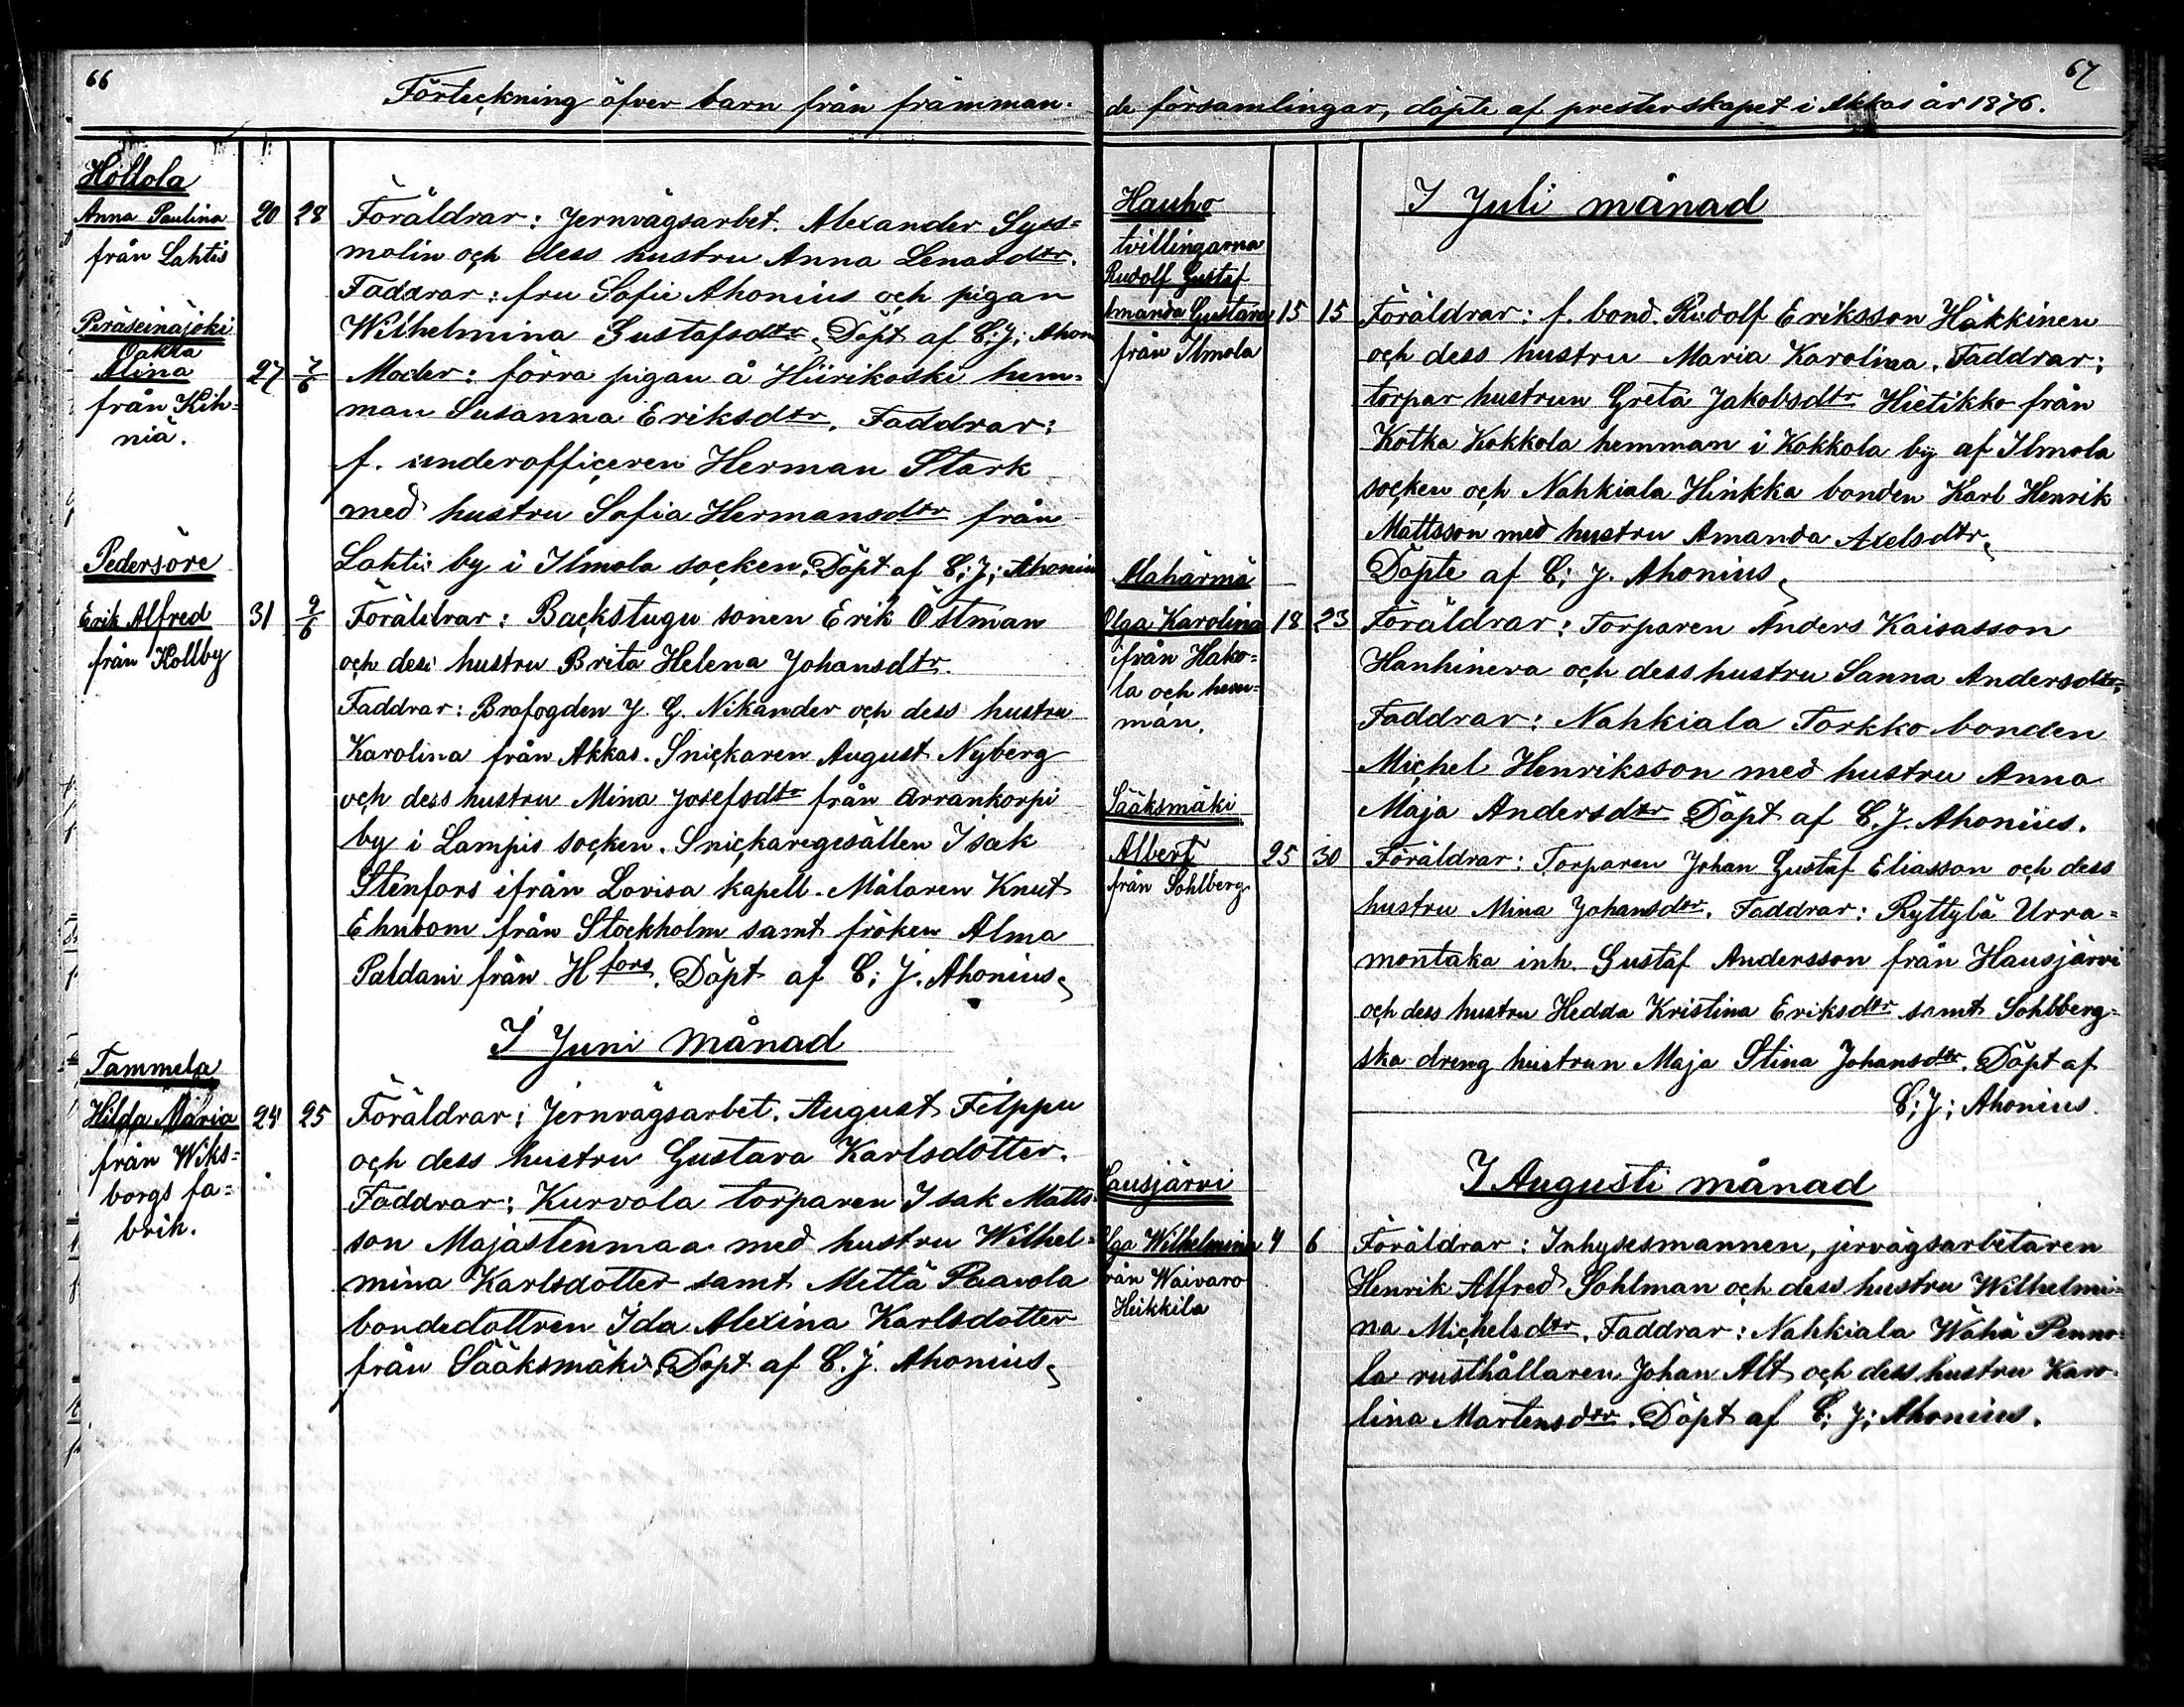 66
Förteckning öfver barn från främman-
Hollola
Anna Paulina 20 28 Föräldrar: Jernvägsarbet. Alexander Syss=
från Lahtis molin och dess hustru Anna Lenasdtr.
Faddrar: fru Sofie Ahonius och pigan
Peräseinäjoki Wilhelmina Gustafsdtr. Döpt af C: J: Ahon
Oäkta
Alina 27 7/6 Moder: förra pigan å Hiirikoski hem-
från Kih= man Susanna Eriksdtr. Faddrar:
niä. f. underofficeren Herman Stark
med hustru Sofia Hermansdtr från
Pedersöre Lahti by i Ilmola socken. Döpt af C: J: Ahoniu
Erik Alfred 31 9/6 Föräldrar: Backstugu sonen Erik Östman
från Kollby och dess hustru Brita Helena Johansdtr.
Faddrar: Brofogden J. G. Nikander och dess hustru
Karolina från Akkas. Snickaren August Nyberg
och dess hustru Mina Josefsdtr från Arrankorpi
by i Lampis socken. Snickaregesällen Isak
Stenfors ifrån Lovisa kapell. Målaren Knut
Ehnbom från Stockholm samt fröken Alma
Paldani från Hfors. Döpt af C: J. Ahonius.
I Juni månad
Tammela
Hilda Maria 24 25 Föräldrar: Jernvägsarbet. August Filppu
från Wiks= och dess hustru Gustava Karlsdotter.
borgs fa= Faddrar: Kurvola torparen Isak Matts-
brik. son Majastenmaa med hustru Wilhel=
mina Karlsdotter samt Mettä Paavola
bondedottren Ida Alexina Karlsdotter
från Sääksmäki. Döpt af C. J. Ahonius.
67
de församlingar, döpte af presterskapet i Akkas år 1876.
Hauho I Juli månad
tvillingarna
Rudolf Gustaf
Amanda Gustava 15 15 Föräldrar: f. bond. Rudolf Eriksson Häkkinen
från Ilmola och dess hustru Maria Karolina. Faddrar:
torpar hustrun Greta Jakobsdtr Hietikko från
Kotka Kokkola hemman i Kokkola by af Ilmola
socken och Nahkiala Hinkka bonden Karl Henrik
Mattsson med hustru Amanda Axelsdtr.
Alahärmä Döpte af C: J. Ahonius.
Olga Karolina 18 23 Föräldrar: Torparen Anders Kaisasson
ifrån Hako= Hanhineva och dess hustru Sanna Andersdtr.
la och hem= Faddrar: Nahkiala Torkko bonden
man. Michel Henriksson med hustru Anna
Sääksmäki Maja Andersdtr Döpt af C. J. Ahonius.
Albert 25 30 Föräldrar: Torparen Johan Gustaf Eliasson och dess
från Sohlberg hustru Mina Johansdtr. Faddrar: Ryttylä Urra=
montaka inh. Gustaf Andersson från Hausjärvi
och dess hustru Hedda Kristina Eriksdtr samt Sohlberg=
ska dreng hustrun Maja Stina Johansdtr. Döpt af
C: J: Ahonius.
ausjärvi I Augusti månad
lga Wilhelmina 4 6 Föräldrar: Inhysesmannen, jervägsarbetaren
rån Waivaro Henrik Alfred Sohlman och dess hustru Wilhelmi=
Heikkila na Michelsdtr. Faddrar: Nahkiala Wähä Penno=
la rusthållaren Johan Alt och dess hustru Karo-
lina Martensdtr. Döpt af C: J: Ahonius.